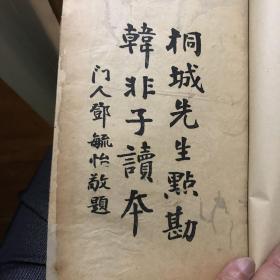 桐城先生點勘
韓非子讀本
門人鄧毓怡敬題